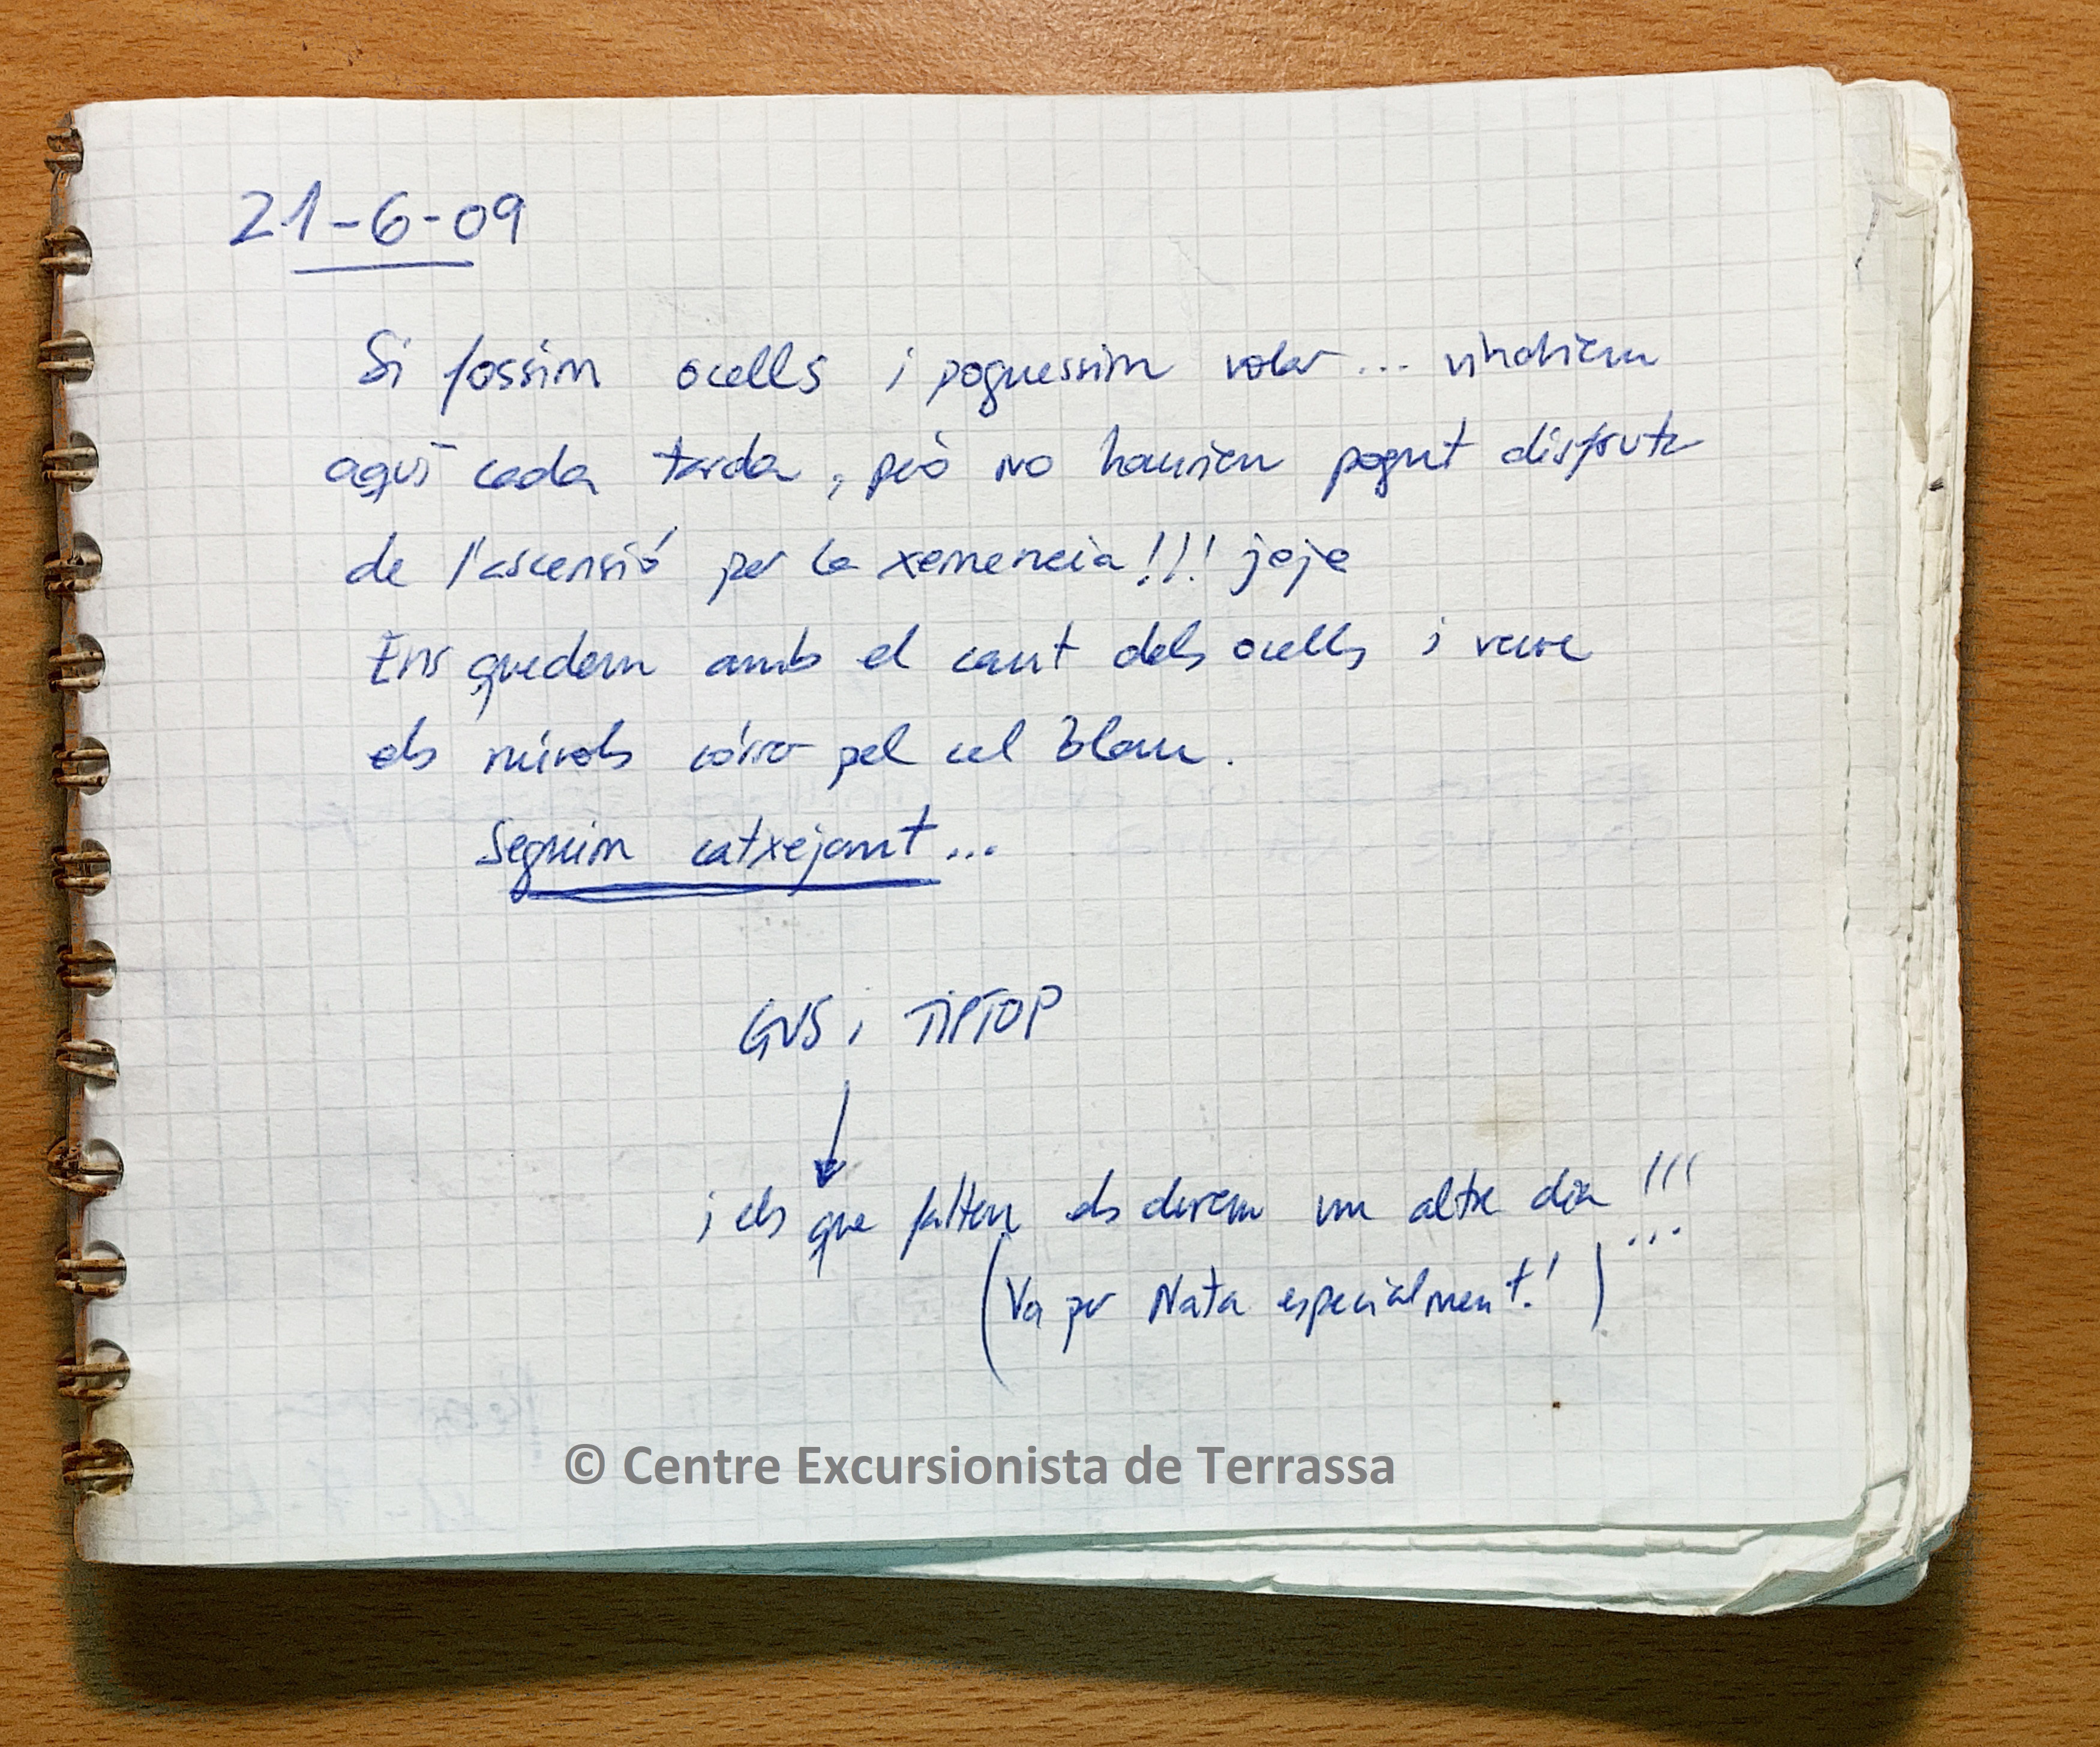 21-6-09
Si fossim ocells i poguessim volar... vindriem
aquí cada tarda, però no hauriem pogut disfrutar
de l'ascensió per la xemeneia!!! jeje
Ens quedem amb el cant dels ocells i veure
els núvols córrer pel cel blau.
Seguim catxejant...
GVS i TIPTOP
i els que falten els durem un altre dia!!!
(Va per Nata especialment!)
© Centre Excursionista de Terrassa